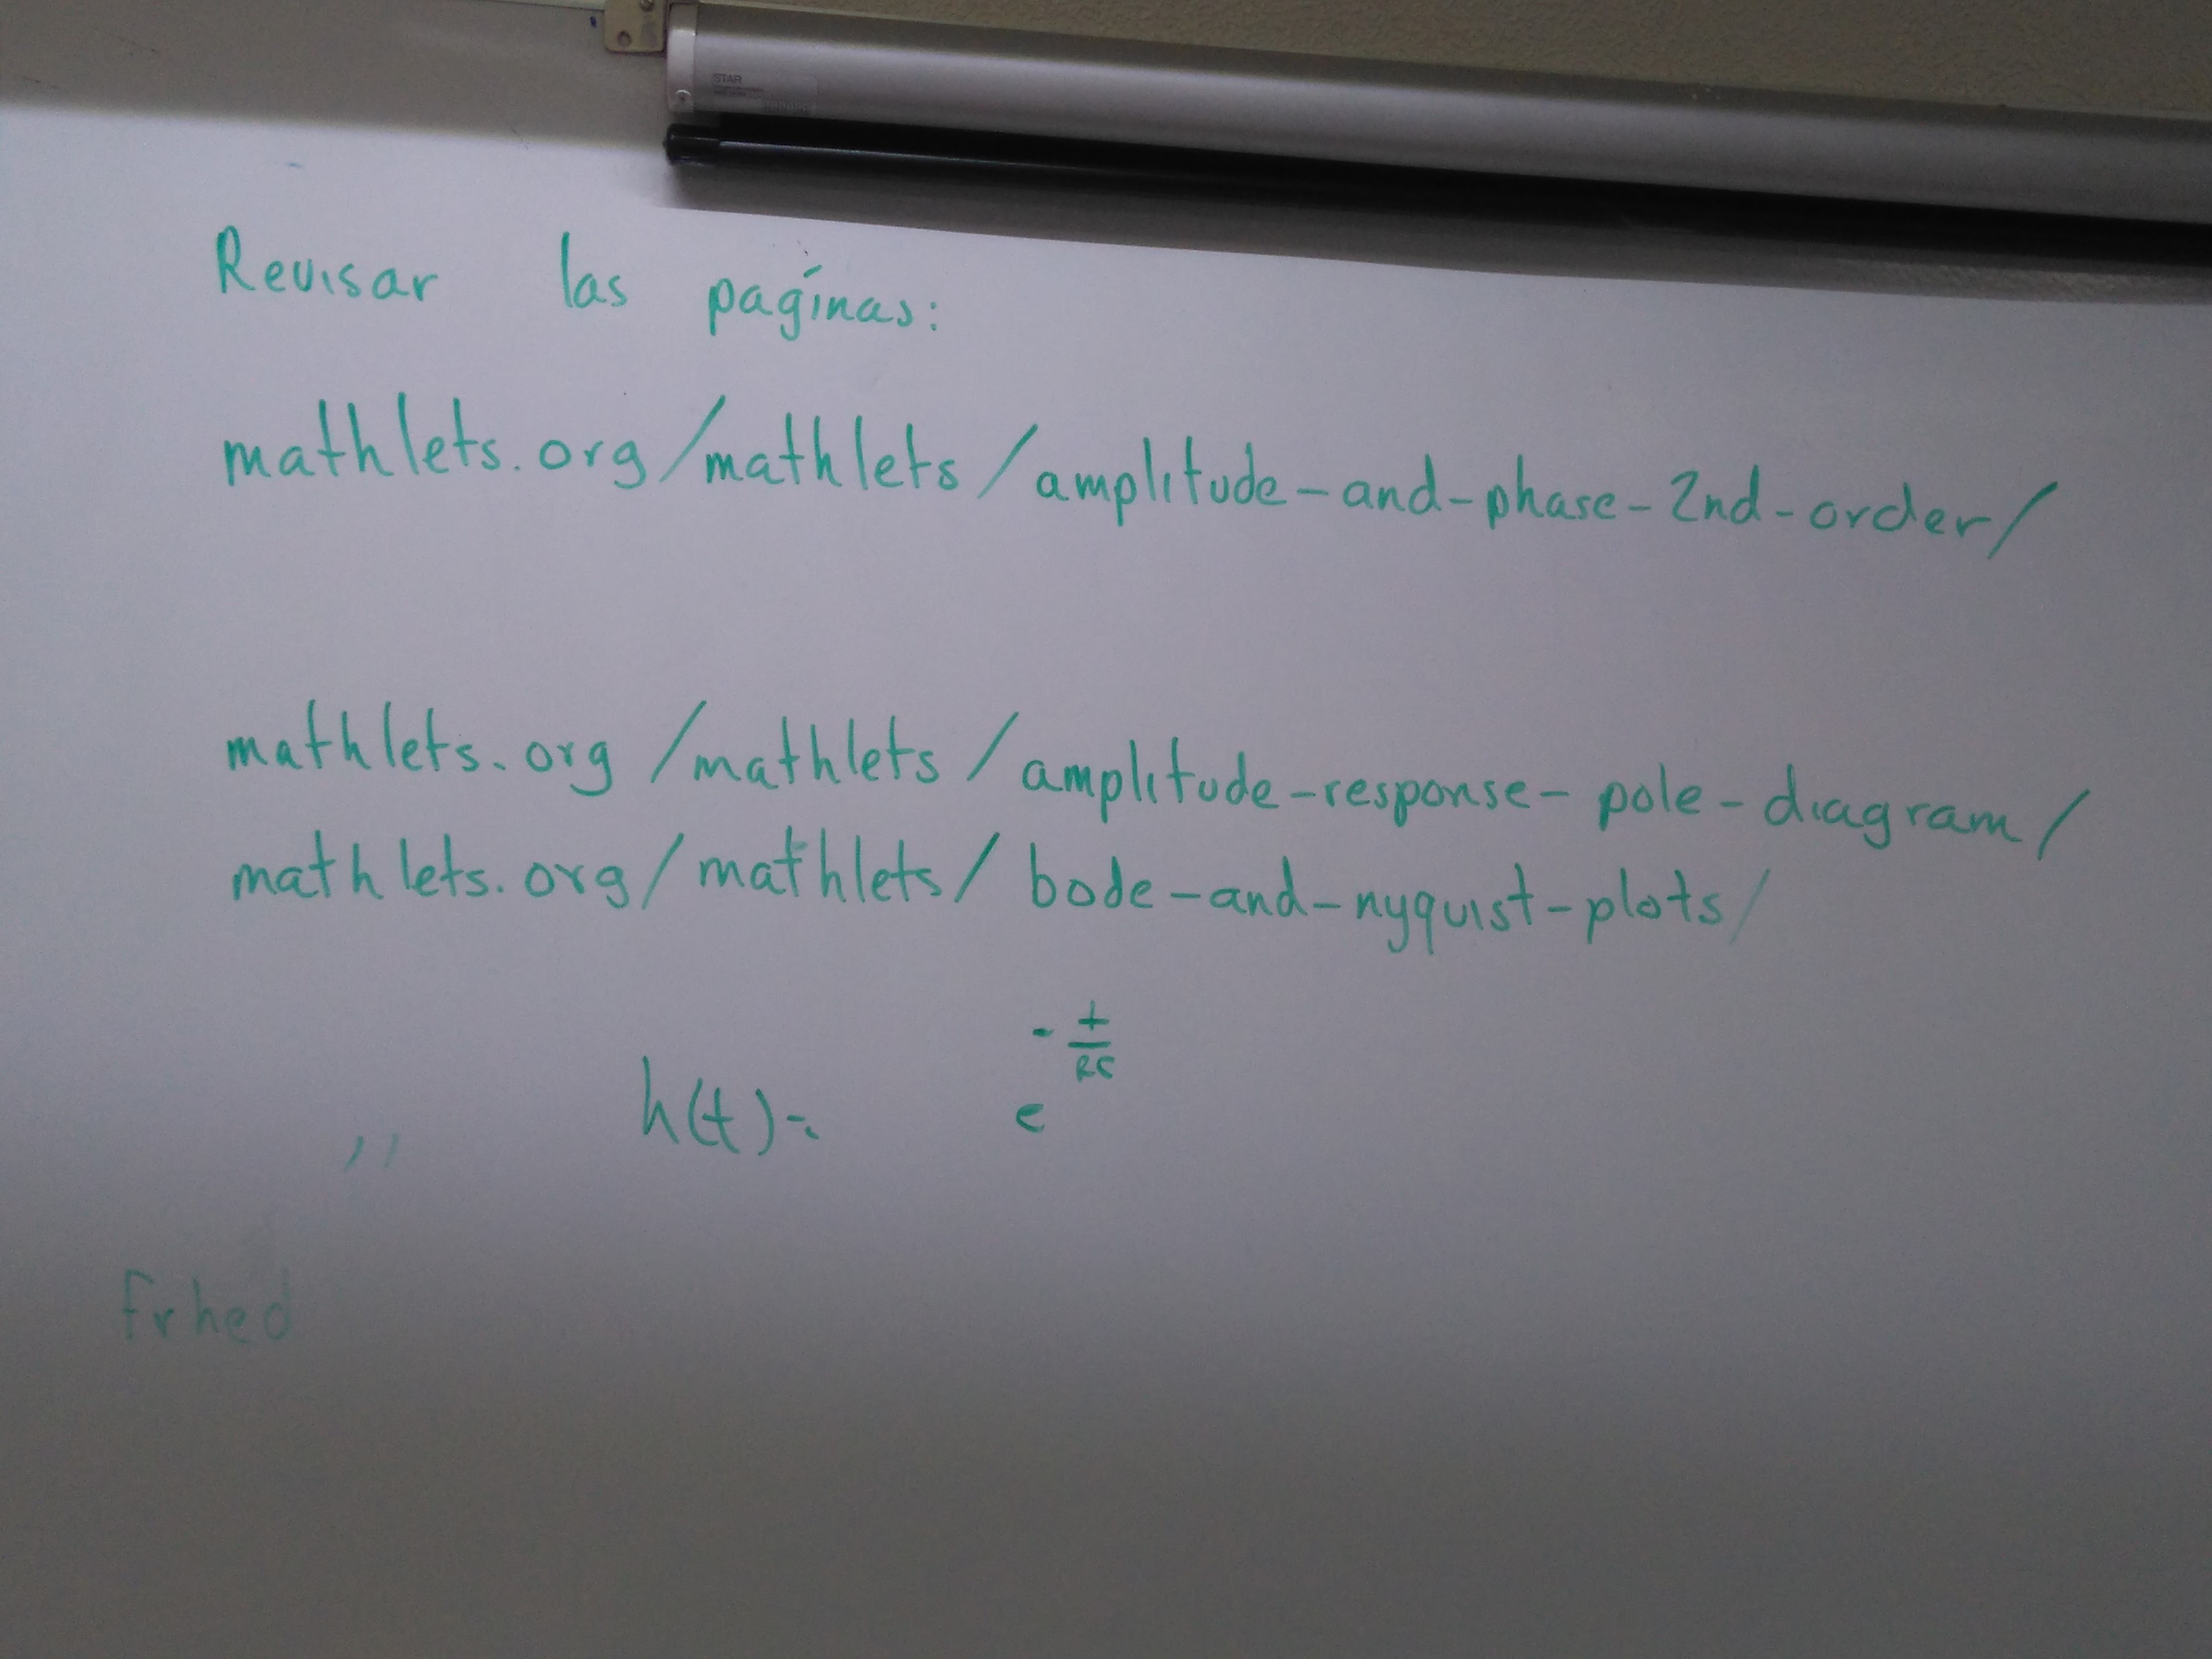 STAR
Revisar las pagínas:
mathlets.org/mathlets/amplitude-and-phase-2nd-order/
mathlets.org/mathlets/amplitude-response-pole-diagram/
mathlets.org/mathlets/bode-and-nyquist-plots/
h(t)= e^-t/RC
frhed